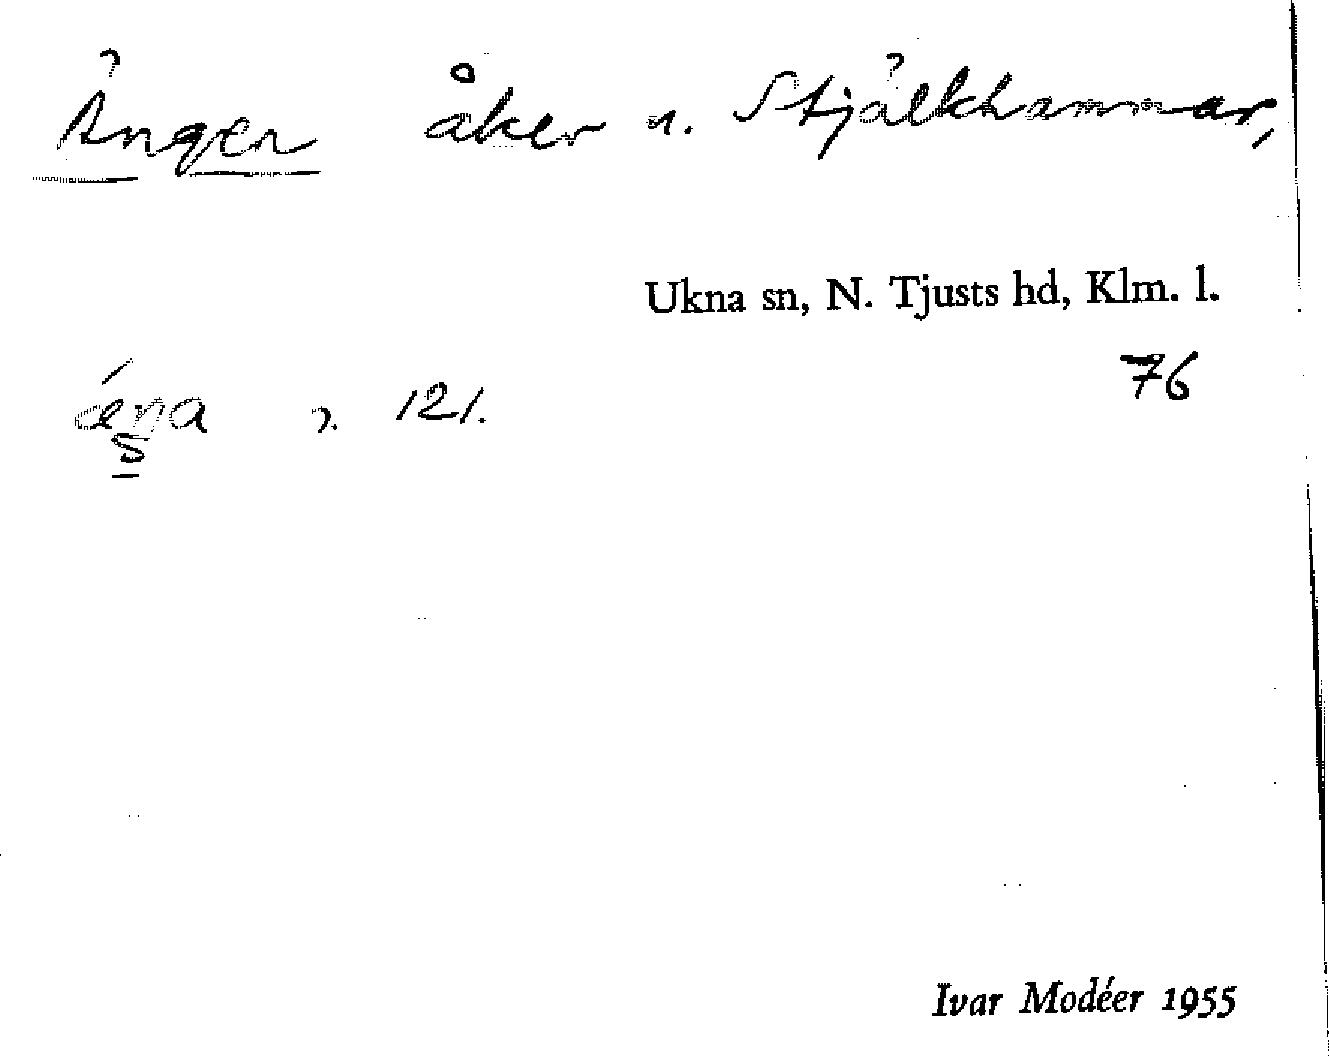 Ängen åker u. Stjälkhammar,
Ukna sn, N. Tjusts hd, Klm. l.
76
121.
Ivar Modéer 1955